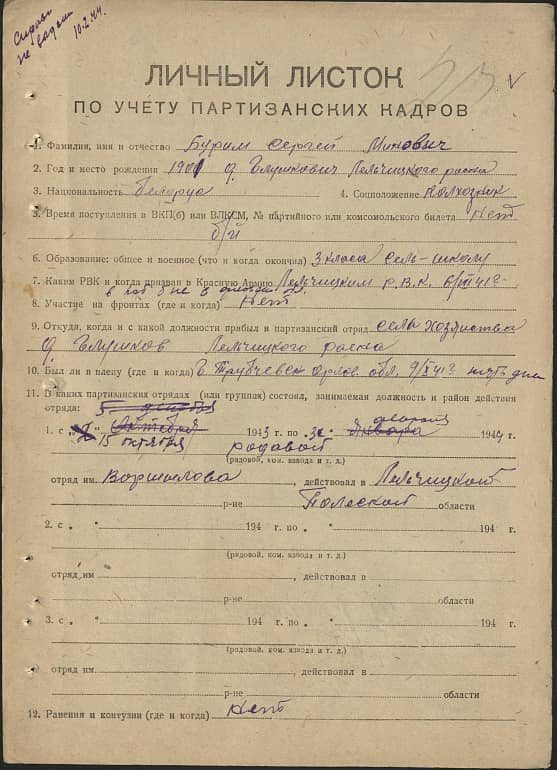 Справ
не выдан
10.2.44.
ЛИЧНЫЙ ЛИСТОК
ПО УЧЕТУ ПАРТИЗАНСКИХ КАДРОВ
1. Фамилия, имя и отчество Бурим Сергей Минович
2. Год и место рождения 1901 д. Глушкович Лельчицкого раена
3. Национальность белорус 4. Соцположение Колхозник
3. Время поступления в ВКП(б) или ВЛКСМ, № партийного или комсомольского билета Нет
б/п
6. Образование: общее и военное (что и когда окончил) 3 класа сель-школы
7. Каким РВК и когда призван в Красную Армию Лельчицким Р.В.К. 6/VII 41г.
8. Участие на фронтах (где и когда) Нет
9. Откуда, когда и с какой должности прибыл в партизанский отряд село хозяиства
д. Глушков Лельчицкого раена
10. Был ли в плену (где и когда) Г. Трубчевск Орлов. обл. 9/X 41г. пять дни
11. В каких партизанских отрядах (или группах) состоял, занимаемая должность и район действия
отряда:
1. с „ Октября 1943 г. по Января февраля 1944 г.
15 октября родавой
(рядовой, ком. взвода и т. д.)
отряд им. Воршилова, действовал в Лельчицкой
р-не Полеской области
2. с „ " 194 г. по „ " 194 г.
(рядовой, ком. взвода и т. д.)
отряд им , действовал в
р-не области
3. с „ " 194 г. по „ " 194 г.
(рядовой, ком. взвода и т. д.)
отряд им. , действовал в
р-не области
12. Ранения и контузии (где и когда) Нет